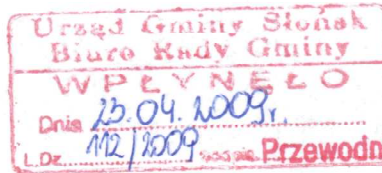 Urząd Gminy Słońsk
Biuro Rady Gminy
WPŁYNĘŁO
Dnia 23.04.2009r.
L.Dz. 112/2009 Przewodn